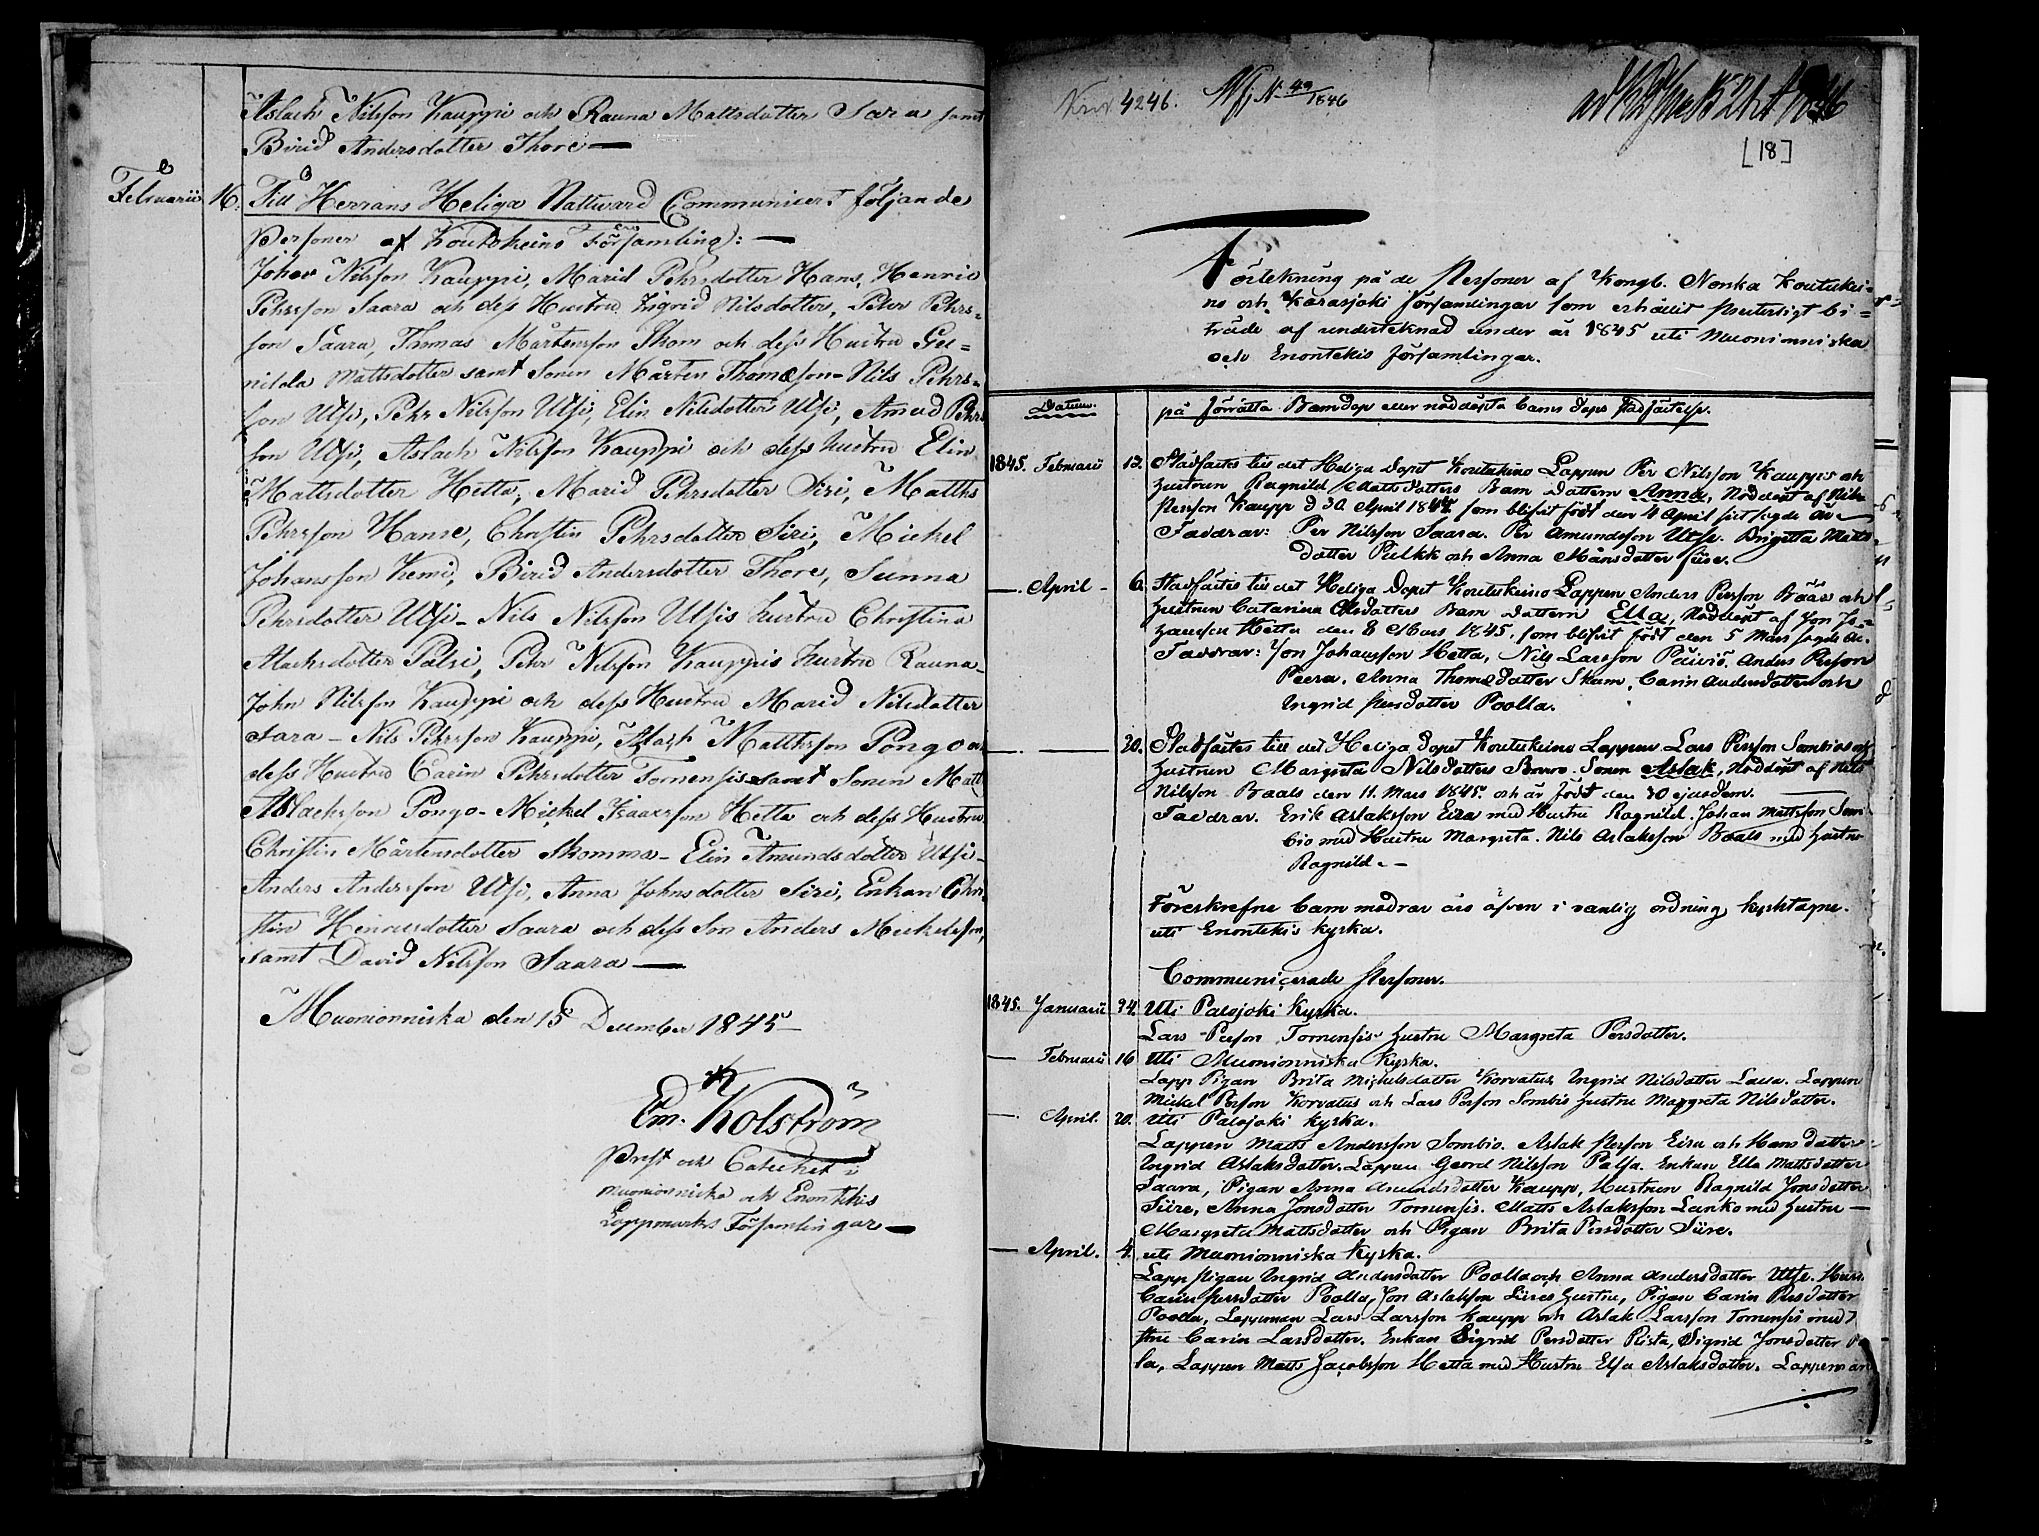 Aslach Nilsson Kauppi och Rauna Mattsdotter Sara samt
Birid Andersdotter Thore —
Februarii 16. Till Herrans Heliga Nattvard Communicert följande
Personer af Koutokeino Församling: —
Johan Nilsson Kauppi, Marid Pehrsdotter Hans, Henric
Pehrsson Saara och dess Hustru Ingrid Nilsdotter, Pehr Pehrs=
son Saara, Thomas Mårtensson Skom och dess Hustru Gu=
nilda Mattsdotter samt Sonen Mårten Thomasson - Nils Pehrs=
son Utsi, Pehr Nilsson Utsi, Elin Nilsdotter Utsi, Amud Pehrs
son Utsi, Aslach Nilsson Kauppi och dess hustru Elin
Mattsdotter Hetta, Marid Pehrsdotter Siri, Matths
Pehrsson Hanse, Christin Pehrsdotter Siri, Mickel
Johansson Kemi, Birid Andersdotter Thore, Sunna
Pehrsdotter Utsi - Nils Nilsson Utsis hustru Christina
Alachsdotter Palsi, Pehr Nilsson Kauppis hustru Rauna -
John Nilsson Kauppi och dess Hustru Marid Nilsdotter
Sara - Nils Pehrsson Kauppi, Aslach Matthsson Pongo och
dess Hustru Carin Pehrsdotter Tornensis samt Sonen Matt
Aslachsson Pongo - Mickel Isaacsson Hetta och dess Hustru
Christin Mårtensdotter Skomma - Elin Amundsdotter Utsi -
Anders Andersson Utsi, Anna Johnsdotter Siri, Enkan Chri
stin Henricsdotter Saara och dess Son Anders Mickelsson,
samt David Nilsson Saara —
Muonionniska den 15 December 1845 -
Em. Kolström
Præst och Catechet i
Muonionniska och Enontekis
Lappmarks Församlingar —
4246. N 49/1846
[18]
Förtekning på de Personer af Kongl. Norska Koutokei=
no och Karasjoki församlingar som erhållit presterligt bi=
träde af undertecknad under år 1845 uti Muonionniska
och Enontekis församlingar.
Datum. på förrätta Barndop eller nöddöpta barns dops stadfästelse.
1845. Februarii 13. Stadfästes till det Heliga Dopet Koutokeino Lappen Per Nilsson Kauppis och
hustrun Ragnild Matts dotters Barn dottern Anna, Nöddöpt af Nils
Persson Kaupp d 30 April 1844 som blifvit född den 4 April sistlegde år —
Faddrar: Per Nilsson Saara. Per Amundsson Utse. Brigitta Matts
dotter Pulkk och Anna Månsdotter Siire.
— April - 6. Stadfästes till det Heliga Dopet Koutokeino Lappen Anders Persson Bäär och
hustrun Catarina Olsdotters Barn dottern Ella, Nöddöpt af Jon Jo=
hansson Hetta den 8 Mars 1845, som blifvit född den 5 Mars sagde år.
Faddrar: Jon Johansson Hetta, Nils Larsson Päiviö, Anders Persson
Peera, Anna Thomsdotter Skum, Carin Andersdotter och
Ingrid Persdotter Poolla.
— — 20. Stadfästes till det Heliga Dopet Koutokeino Lappen Lars Persson Sombios och
hustrun Margreta Nilsdotters Barn Sonen Aslak, Nöddöpt af Nils
Nilsson Baals den 11. Mars 1845. och är född den 30 ejusdem.
Faddrar. Erik Aslaksson Eira med Hustru Ragnild. Johan Mattsson Som
bio med Hustru Margreta. Nils Aslaksson Baals med hustru
Ragnild. -
Föreskrefne barnmödrar äro äfven i vanlig ordning kyrktagne
uti Enontekis kyrka.
Communicerade Personer.
1845. Januarii 24. Uti Palojoki Kyrka.
Lars Persson Tornensis hustru Margreta Persdotter.
— Februarii 16 Uti Muonionniska Kyrka.
Lapp Pigan Brita Mickelsdotter Korvatus, Ingrid Nilsdotter Saua. Lappen
Mickel Persson Korvatus och Lars Persson Sombio hustru Margreta Nilsdotter.
— April. 20. Uti Palojoki kyrka.
Lappen Matts Andersson Sombio. Aslak Persson Eira och Hans dotter
Ingrid Aslaksdotter. Lappen Geord Nilsson Palsa. Enkan Ella Mattsdotter
Saara, Pigan Anna Amundsdotter Kaupp, Hustrun Ragnild Jonsdotter
Siire, Anna Jonsdotter Tornensis. Matts Aslaksson Lanko med hustru —
Margreta Mattsdotter och Pigan Brita Persdotter Siire.
— April. 4. uti Muonionniska Kyrka.
Lapp Pigan Ingrid Andersdotter Poolla och Anna Andersdotter Utse.
Carin Persdotter Poolla, Jon Aslaksson Siires hustru, Pigan Carin Persdotter
Poolla, Lappman Lars Larsson Kaupp och Aslak Larsson Tornensis med
stru Carin Larsdotter. Enkan Sigrid Persdotter Pista, Sigrid Jonsdotter
la, Lappen Matts Jacobsson Hetta med Hustru Elsa Aslaksdotter. Lappeman